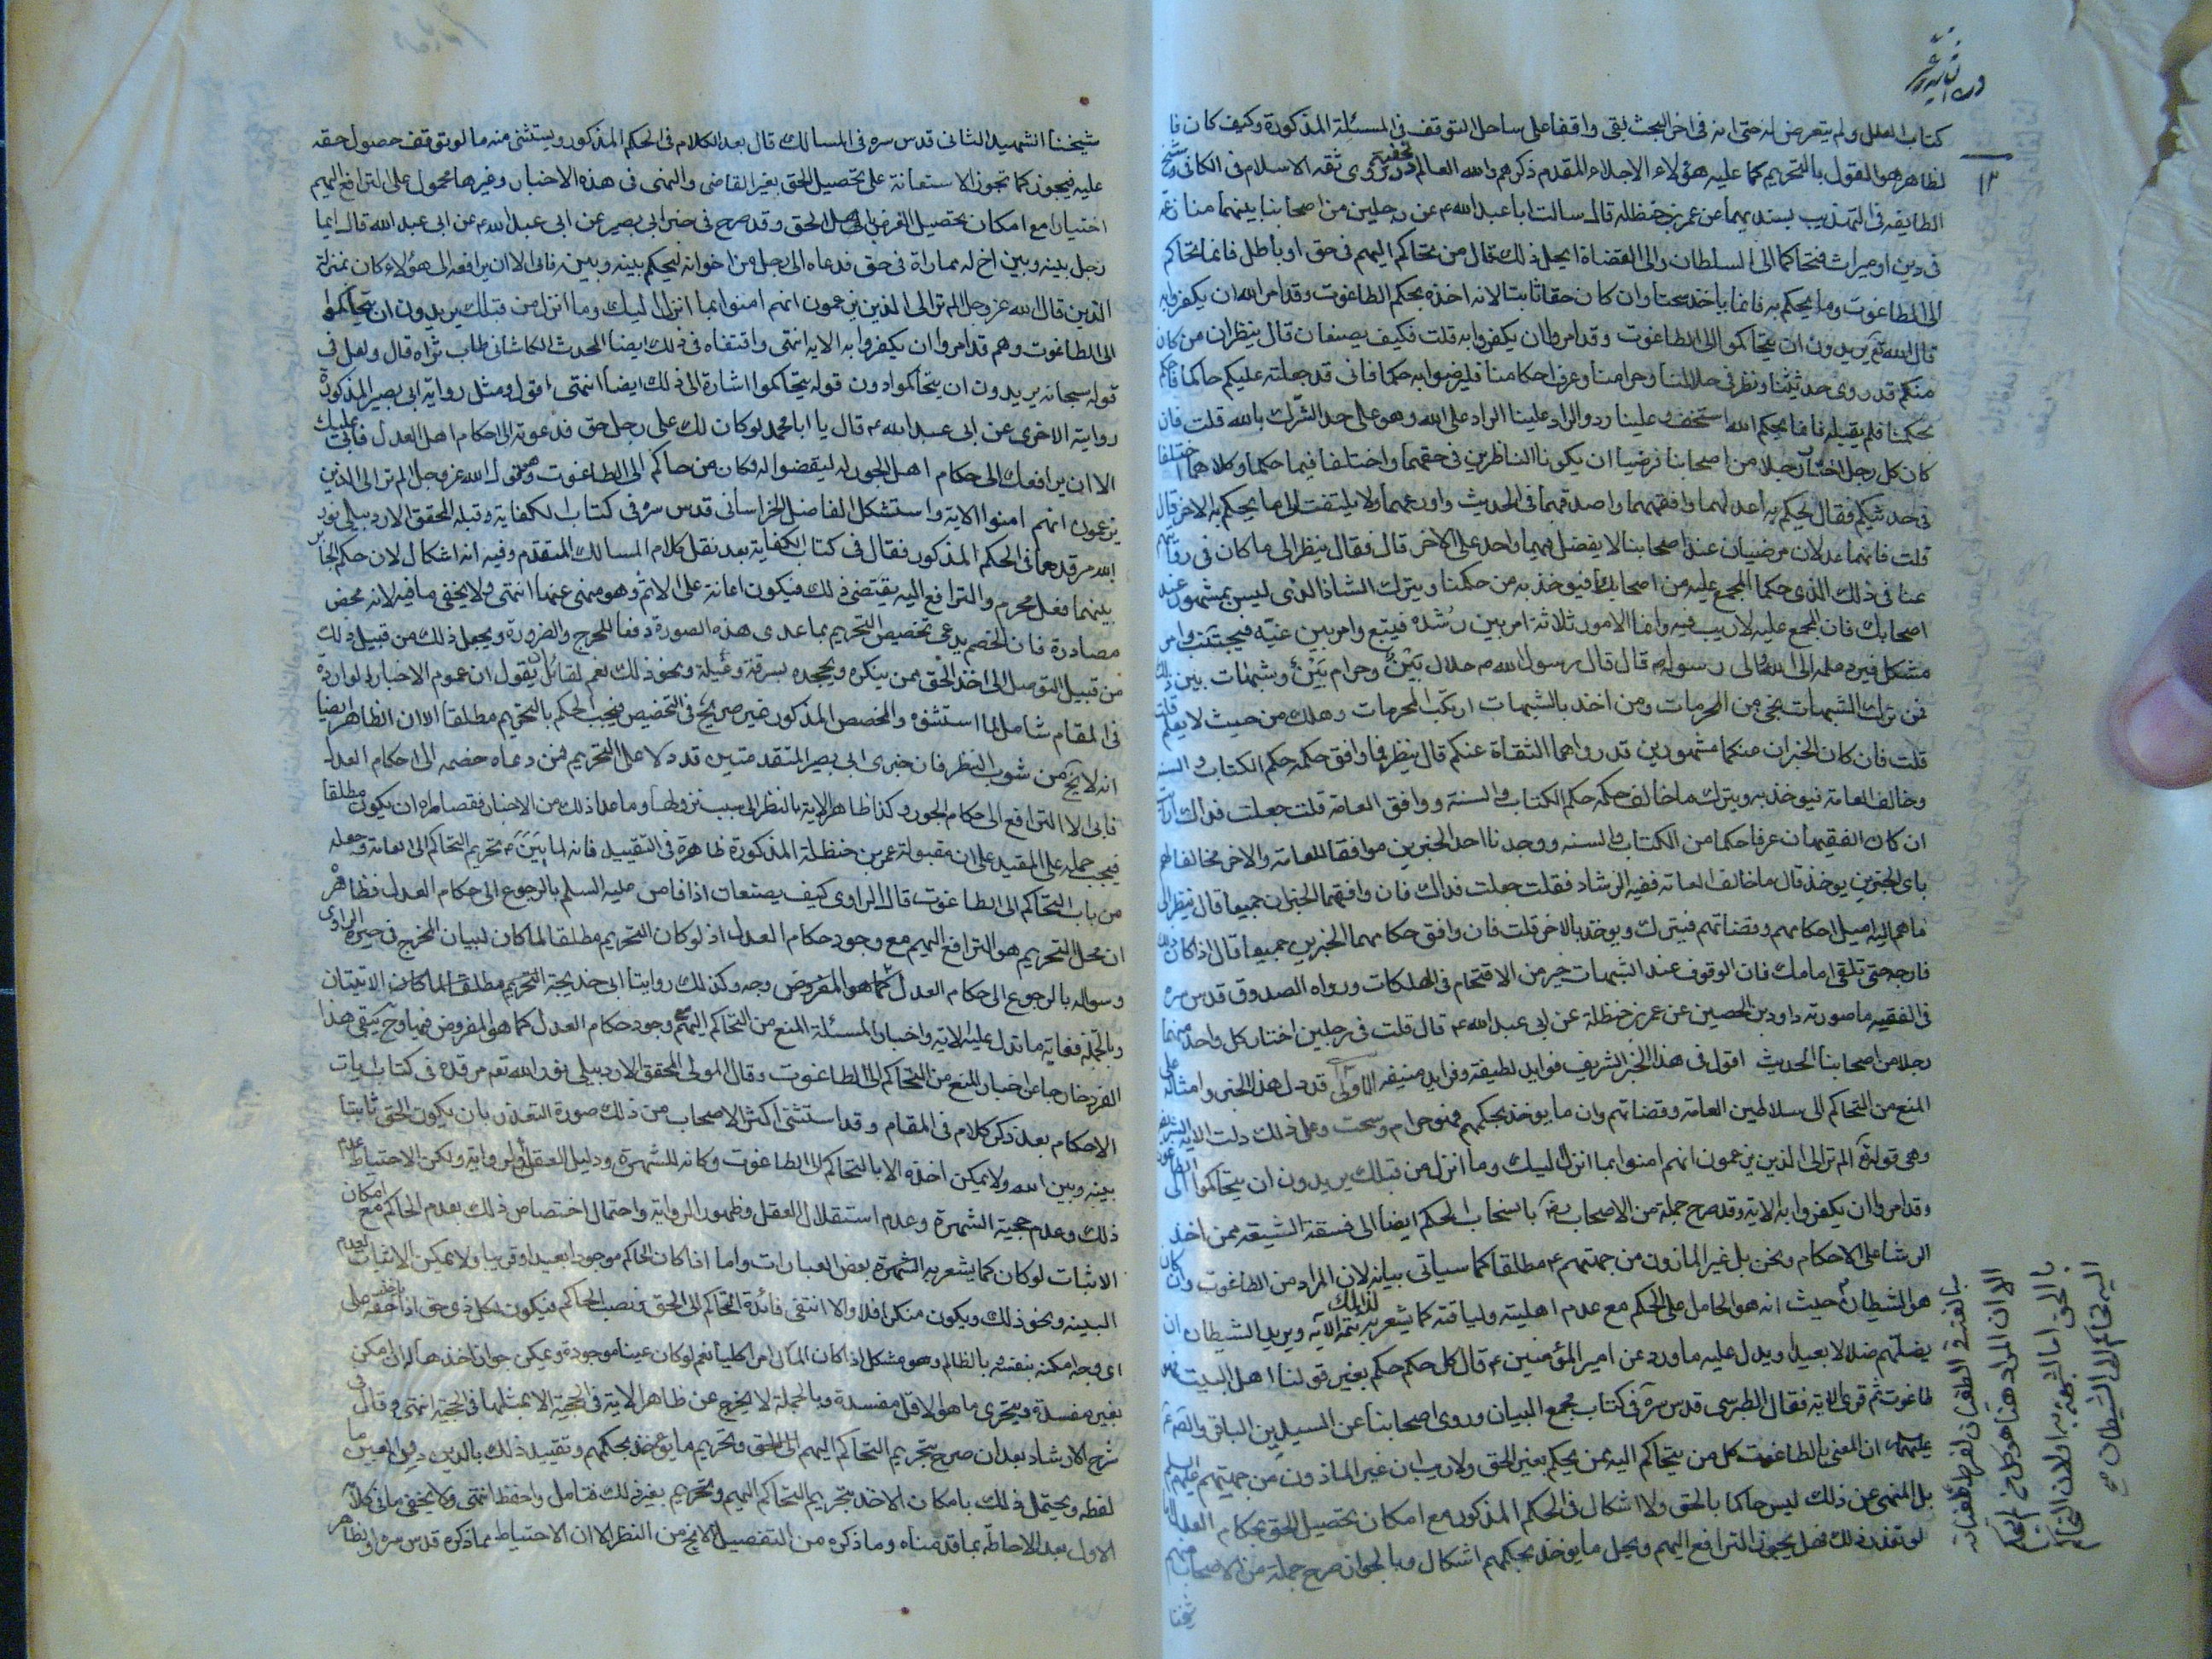 كتاب العلل ولم يتعرض له حتى انه في اخر البحث بقى واقفا على ساحل التوقف في المسئلة المذكورة وكيف كان فا
لظاهر هو القول بالتحريم كما عليه هؤلاء الاجلاء المقدم ذكرهم والله العالم روى ثقه الاسلام في الكافي وشيخ
الطايفه في التهذيب بسنديهما عن عمر بن حنظله قال سالت ابا عبد الله ع عن رجلين من اصحابنا بينهما منازعة
في دين او ميراث فتحاكما الى السلطان والى القضاة ايحل ذلك قال من تحاكم اليهم في حق او باطل فانما تحاكم
الى الطاغوت وما يحكم به فانما ياخذ سحتا وان كان حقا ثابتا لانه اخذه بحكم الطاغوت وقد امر الله ان يكفروا به
قال الله تع يريدون ان يتحاكموا الى الطاغوت وقد امروا ان يكفروا به قلت فكيف يصنعان قال ينظران من كان
منكم قد روى حديثنا ونظر في حلالنا وحرامنا وعرف احكامنا فليرضوا به حكما فاني قد جعلته عليكم حاكما فاذا حكم
بحكمنا فلم يقبله فانما بحكم الله استخف وعلينا رد والراد علينا الراد على الله وهو على حد الشرك بالله قلت فان
كان كل رجل اختار رجلا من اصحابنا فرضيا ان يكونا الناظرين في حقهما واختلفا فيما حكما وكلاهما اختلفا
في حديثكم فقال الحكم به اعدلهما وافقههما واصدقهما في الحديث واورعهما ولا يلتفت الى ما يحكم به الاخر قال
قلت فانهما عدلان مرضيان عند اصحابنا لا يفضل فيهما واحد على الاخر قال فقال ينظر الى ما كان في روايتهم
عنا في ذلك الذي حكما المجمع عليه من اصحابك فيوخذ به من حكمنا ويترك الشاذ الذي ليس بمشهور عند
اصحابك فان المجمع عليه لا ريب فيه وانما الامور ثلاثة امر بين رشده فيتبع وامر بين غيه فيجتنب وامر
مشكل فيرد علمه الى الله والى رسوله قال قال رسول الله ص حلال بين وحرام بين وشبهات بين ذلك
فمن ترك الشبهات نجى من المحرمات ومن اخذ بالشبهات ارتكب المحرمات وهلك من حيث لا يعلم قلت
قلت فان كان الخبران منكما مشهورين قد رواهما الثقاة عنكم قال ينظر فيما وافق حكمه حكم الكتاب والسنة
وخالف العامة فيوخذ به ويترك ما خالف حكمه حكم الكتاب والسنة ووافق العامة قلت جعلت فداك ارايت
ان كان الفقيهان عرفا حكما من الكتاب والسنه ووجدنا احد الخبرين موافقا للعامة والاخر مخالفا لهم
باى الخبرين يوخذ قال ما خالف العامه ففيه الرشاد فقلت جعلت فداك فان وافقهما الخبران جميعا قال ينظر الى
ما هم اليه اميل احكامهم وقضاتهم فيترك ويوخذ بالاخر قلت فان وافق حكامهما الخبرين جميعا قال اذا كان ذلك
فارجه حتى تلقى امامك فان الوقوف عند الشبهات خير من الاقتحام في الهلكات ورواه الصدوق قدس سره
في الفقيه ما صورته داود بن الحصين عن عمر بن حنظلة عن ابي عبد الله ع قال قلت في رجلين اختار كل واحد منهما
رجلا من اصحابنا الحديث اقول في هذا الخبر الشريف فوايد لطيفة وفرايد منيفه الاولى قد دل هذا الخبر وامثاله على
المنع من التحاكم الى سلاطين العامة وقضاتهم وان ما يوخذ بحكمهم فهو حرام وسحت وعلى ذلك دلت الايه الشريفة
وهي قوله الم تر الى الذين يزعمون انهم امنوا بما انزل اليك وما انزل من قبلك يريدون ان يتحاكموا الى الطاغوت
وقد امروا ان يكفروا به الاية وقد صرح جملة من الاصحاب رض بانسحاب الحكم ايضا الى فسقة الشيعة ممن اخذ
الرشا على الاحكام ونحن بل غير الماذون من جهتهم ع مطلقا كما سياتي بيانه لان المراد من الطاغوت وان كان
هو الشيطان حيث انه هو الحامل على الحكم مع عدم اهليته ولياقته لذلك كما يشعر به تتمة الآيه ويريد الشيطان ان
يضلهم ضلالا بعيدا ويدل عليه ما ورد عن امير المؤمنين ع قال كل حكم حكم بغير قولنا اهل البيت فهو
طاغوت ثم قرء الاية فقال الطبرسي قدس سره في كتاب مجمع البيان وروى اصحابنا عن السيدين الباقر والصادق
عليهما السلام ان المعنى بالطاغوت كل من يتحاكم اليه ممن يحكم بغير الحق ولا ريب ان غير الماذون من جهتهم عليهم السلم
بل المنهى عن ذلك ليس حاكما بالحق ولا اشكال في الحكم المذكور مع امكان تحصيل الحق بحكام العدل اما
لو تعذر ذلك فهل يجوز الترافع اليهم ويحل ما يوخذ بحكمهم اشكال وبالجواز صرح جملة من الاصحاب منهم
شيخنا
الا ان المراد هنا هو كل من
اليه تحاكم الى الشيطان
شيخنا الشهيد الثاني قدس سره في المسالك قال بعد الكلام في الحكم المذكور ويستثنى منه ما لو توقف حصول حقه
عليه فيجوز كما تجوز الاستعانة على تحصيل الحق بغير القاضي والنهى في هذه الاخبار وغيرها محمول على الترافع اليهم
اختيارا مع امكان تحصيل الغرض باهل الحق وقد صرح في خبر ابي بصير عن ابي عبد الله ع عن ابي عبد الله قال ايما
رجل بينه وبين اخ له مماراة في حق فدعاه الى رجل من اخوانه ليحكم بينه وبينه فابى الا ان يرافعه الى هؤلاء كان بمنزلة
الذين قال الله عز وجل الم تر الى الذين يزعمون انهم امنوا بما انزل اليك وما انزل من قبلك يريدون ان يتحاكموا
الى الطاغوت وهم قد امروا ان يكفروا به الايه انتهى واقتفاه في ذلك ايضا المحدث الكاشاني طاب ثراه قال ولعل في
قوله سبحانه يريدون ان يتحاكموا دون قوله يتحاكموا اشارة الى ذلك ايضا انتهى اقول ومثل رواية ابي بصير المذكورة
روايته الاخرى عن ابي عبد الله ع قال يا ابا محمد لو كان لك على رجل حق فدعوته الى احكام اهل العدل فابى عليك
الا ان يرافعك الى حكام اهل الجور له ليقضوا له كان ممن حاكم الى الطاغوت وهو قول الله عز وجل الم تر الى الذين
يزعمون انهم امنوا الاية واستشكل الفاضل الخراساني قدس سره في كتاب الكفاية وقبله المحقق الاردبيلي نور
الله مرقدهما في الحكم المذكور فقال في كتاب الكفاية بعد نقل كلام المسالك المتقدم وفيه انه اشكال لان حكم الجائر
بينهما فعل محرم والترافع اليه يقتضي ذلك فيكون اعانة على الاثم وهو منهى عنها انتهى ولا يخفى ما فيه لانه محض
مصادرة فان الخصم يدعى تخصيص التحريم بما عدى هذه الصورة دفعا للحرج والضرورة ويجعل ذلك من قبيل ذلك
من قبيل التوصل الى اخذ الحق ممن ينكره ويجحده بسرقة وغيلة ونحو ذلك نعم لقائل ان يقول ان عموم الاخبار الواردة
في المقام شامل لما استثنوه والمخصص المذكور غير صريح في التخصيص فيجب الحكم بالتحريم مطلقا الا ان الظاهر ايضا
انه لا يخ من شوب النظر فان خبرى ابي بصير المتقدمتين قد دلا على التحريم فمن دعاه خصمه الى احكام العدل
فابى الا الترافع الى حكام الجور وكذا ظاهر الاية بالنظر الى سبب نزولها وما عدا ذلك من الاخبار فقصاراه ان يكون مطلقا
فيجب حمله على المقيد على ان مقبولة عمر بن حنظلة المذكورة ظاهرة في التقييد فانه لما بين ع تحريم التحاكم الى العامة وجعله
من باب التحاكم الى الطاغوت قال الراوي كيف يصنعان اذا فامر عليه السلم بالرجوع الى حكام العدل فظاهر
ان محل التحريم هو الترافع اليهم مع وجود حكام العدل اذ لو كان التحريم مطلقا لما كان لبيان المخرج في حيرة الراوى
وسواله بالرجوع الى حكام العدل كما هو المفروض وجه وكذلك روايتا ابي خديجة التحريم مطلقا لما كان الاتيتان
وبالجمله فغاية ما تدل عليه الاية واخبار المسئلة المنع من التحاكم اليهم مع وجود حكام العدل كما هو المفروض فيها وح يبقى هذا
الفرد خارجا عن اخبار المنع من التحاكم الى الطاغوت وقال المولى المحقق الاردبيلي نور الله تع مرقده في كتاب ايات
الاحكام بعد ذكر كلام في المقام وقد استثنى اكثر الاصحاب من ذلك صورة التعذر بان يكون الحق ثابتا
بينه وبين الله ولا يمكن اخذه الا بالتحاكم الى الطاغوت وكانه للشهرة ودليل العقل والرواية ولكن الاحتياط عدم
ذلك وعدم حجية الشهرة وعدم استقلال العقل وظهور الرواية واحتمال اختصاص ذلك بعدم الحاكم مع امكان
الاثبات لو كان كما يشعر به الشهرة بعض العبارات واما اذا كان الحاكم موجودا بعيدا او قريبا ولا يمكن الاثبات لعدم
البينه ونحو ذلك ويكون منكرا فلا والا انتفى فائدة التحاكم الى الحق ونصب الحاكم فيكون لكل ذى حق اخذ حقه على
اى وجه امكنه بنفسه بالظالم وهو مشكل اذا كان المال امرا كليا نعم لو كان عينا موجودة ويمكن جواز اخذها له ان امكن
بغير مفسدة ويتحرى ما هو الاقل مفسدة وبالجملة لا يخرج عن ظاهر الاية في الحجية الا بمثلها في الحجية انتهى وقال في
شرح الارشاد بعد ان صرح بتحريم التحاكم اليهم الى الحق وتحريم ما يوخذ بحكمهم وتقييد ذلك بالدين دون العين ما
لفظه ويحتمل ذلك بامكان الاخذ بتحريم التحاكم اليهم وتحريم بغير ذلك فتامل واحفظ انتهى ولا يخفى ما في كلامه
الاول بعد الاحاطة بما قدمناه وما ذكره من التفصيل لا يخ من النظر الا ان الاحتياط بما ذكره قدس سره